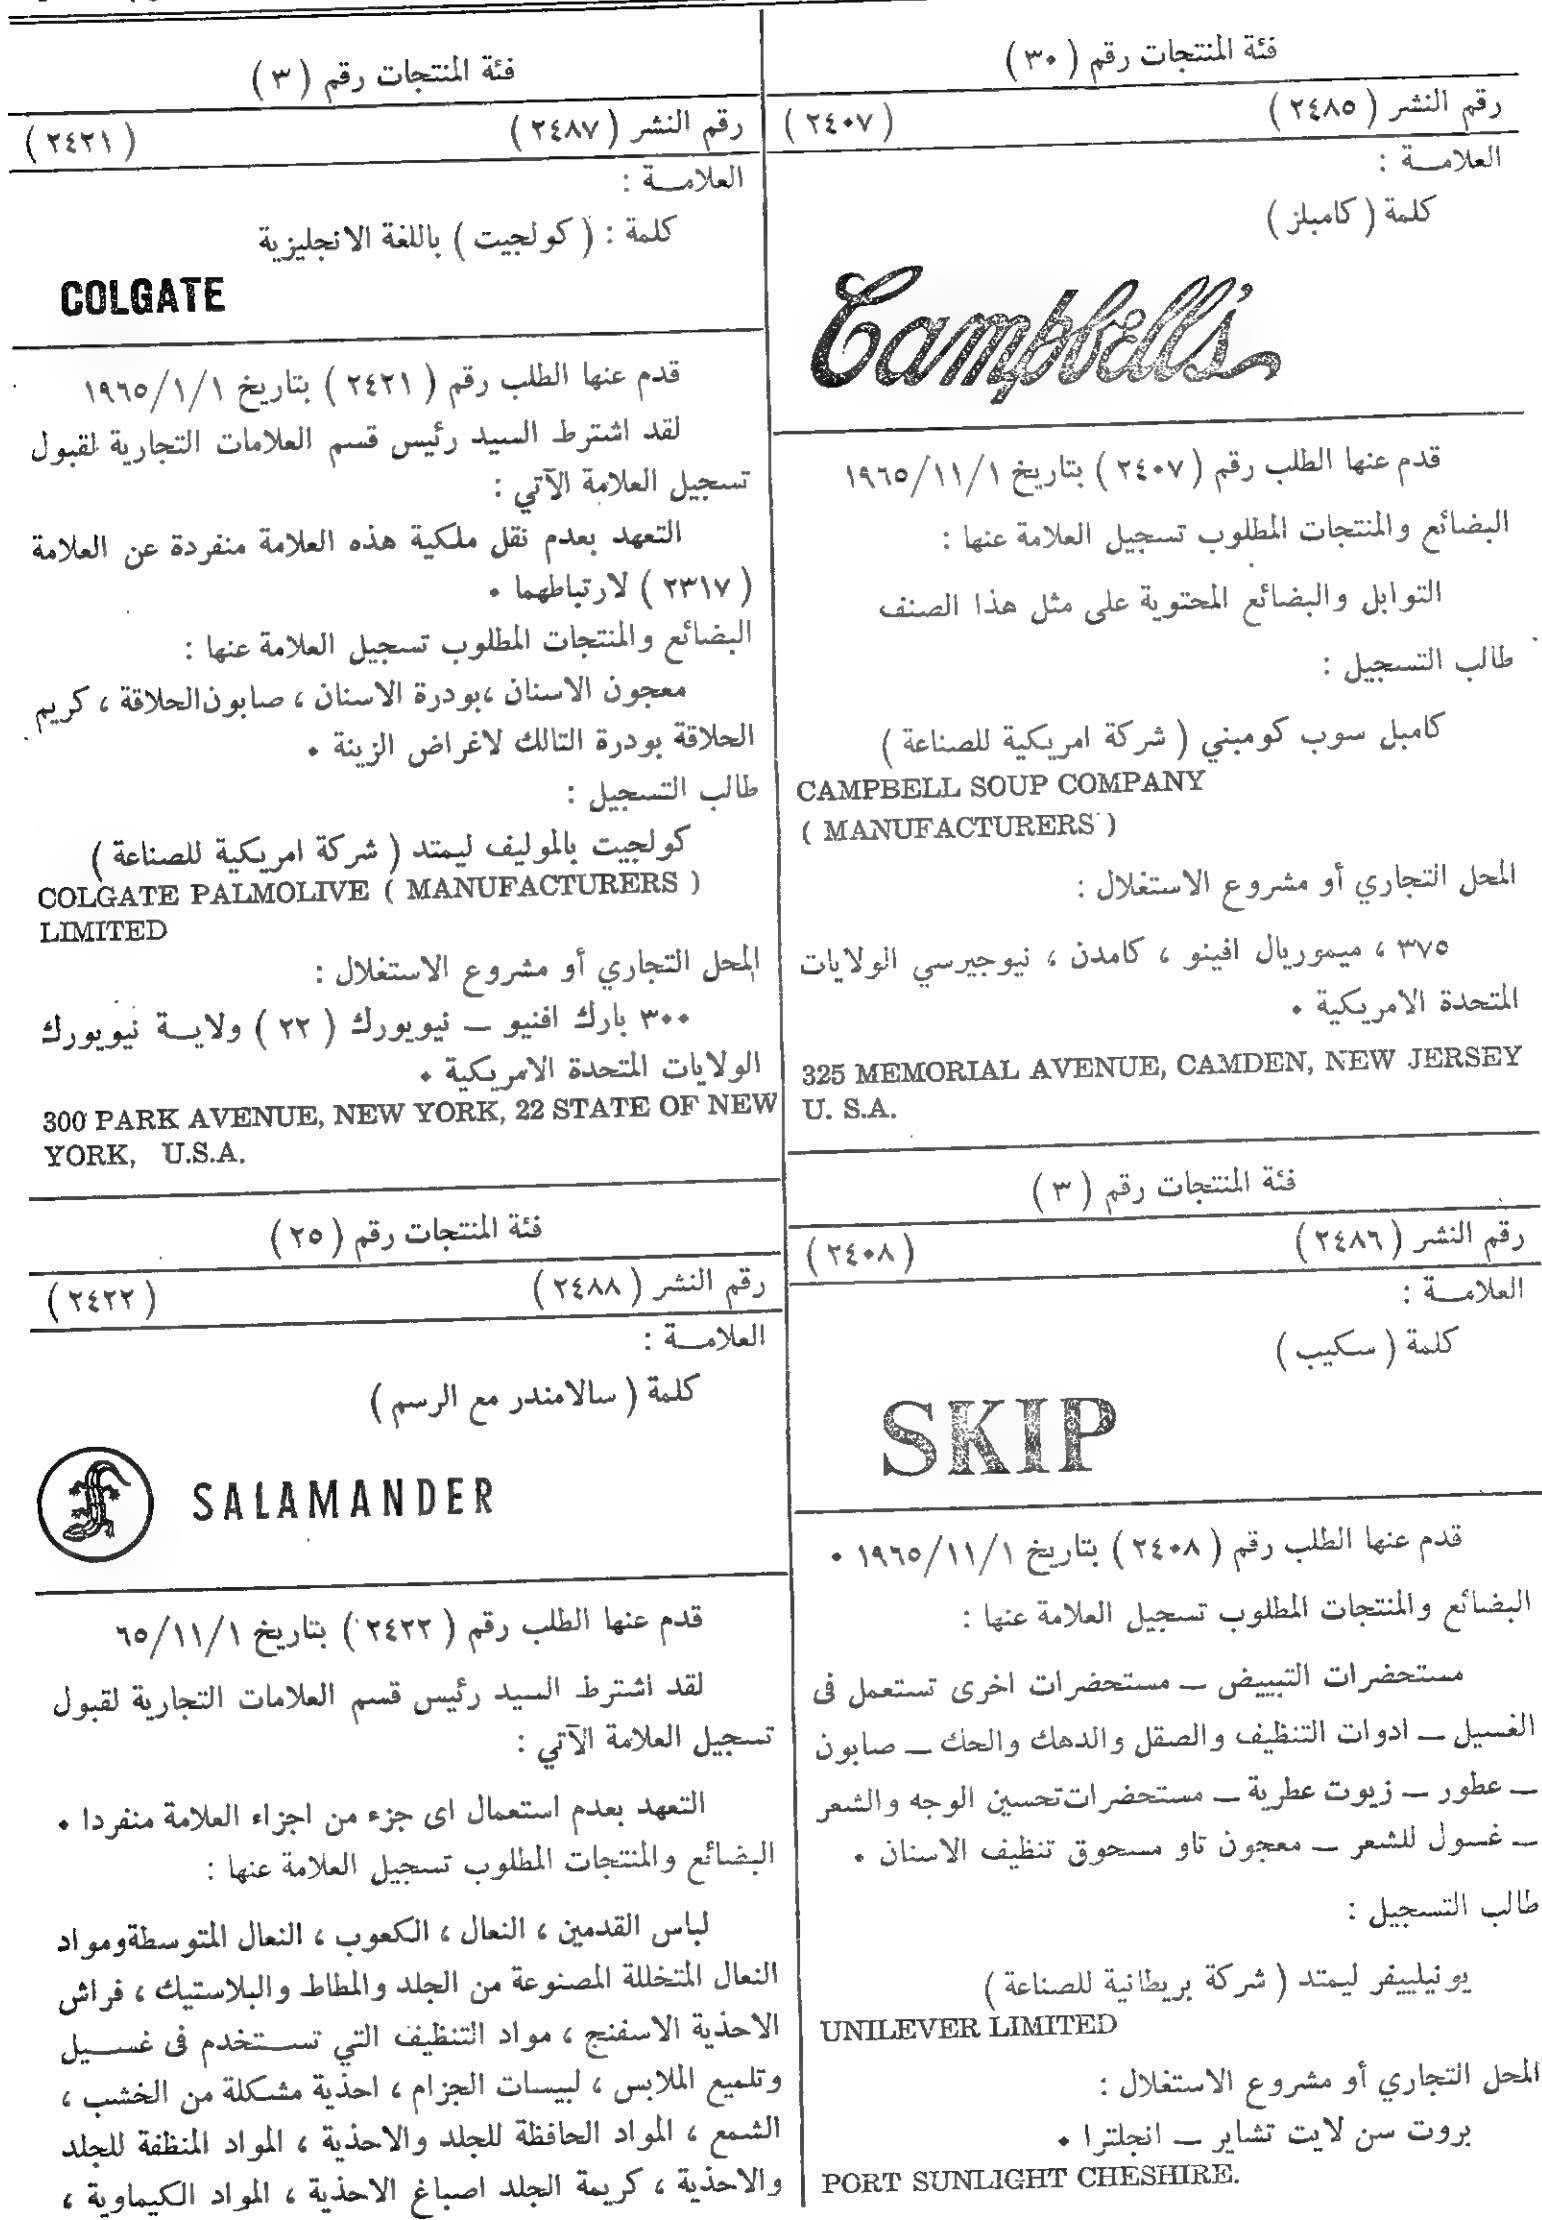 فئة المنتجات رقم ( ٣٠ )
رقم النشر ( ٢٤٨٥ ) ( ٢٤٠٧ )
العلامـــة :
كلمة ( كامبلز )
Campbell's
قدم عنها الطلب رقم ( ٢٤٠٧ ) بتاريخ ١٩٦٥/١١/١
البضائع والمنتجات المطلوب تسجيل العلامة عنها :
التوابل والبضائع المحتوية على مثل هذا الصنف
طالب التسجيل :
كامبل سوب كومبني ( شركة امريكية للصناعة )
CAMPBELL SOUP COMPANY
( MANUFACTURERS )
المحل التجاري أو مشروع الاستغلال :
٣٧٥ ، ميموريال افينو ، كامدن ، نيوجيرسي الولايات
المتحدة الامريكية •
325 MEMORIAL AVENUE, CAMDEN, NEW JERSEY
U. S.A.
فئة المنتجات رقم ( ٣ )
رقم النشر ( ٢٤٨٦ ) ( ٢٤٠٨ )
العلامـــة :
كلمة ( سكيب )
SKIP
قدم عنها الطلب رقم ( ٢٤٠٨ ) بتاريخ ١٩٦٥/١١/١ •
البضائع والمنتجات المطلوب تسجيل العلامة عنها :
مستحضرات التبييض — مستحضرات اخرى تستعمل فى
الغسيل — ادوات التنظيف والصقل والدهك والحك — صابون
— عطور — زيوت عطرية — مستحضرات تحسين الوجه والشعر
— غسول للشعر — معجون تاو مسحوق تنظيف الاسنان •
طالب التسجيل :
يونيلييفر ليمتد ( شركة بريطانية للصناعة )
UNILEVER LIMITED
المحل التجاري أو مشروع الاستغلال :
بروت سن لايت تشاير — انجلترا •
PORT SUNLIGHT CHESHIRE.
فئة المنتجات رقم ( ٣ )
رقم النشر ( ٢٤٨٧ ) ( ٢٤٢١ )
العلامـــة :
كلمة : ( كولجيت ) باللغة الانجليزية
COLGATE
قدم عنها الطلب رقم ( ٢٤٢١ ) بتاريخ ١٩٦٥/١/١
لقد اشترط السيد رئيس قسم العلامات التجارية لقبول
تسجيل العلامة الآتي :
التعهد بعدم نقل ملكية هذه العلامة منفردة عن العلامة
( ٢٣١٧ ) لارتباطهما •
البضائع والمنتجات المطلوب تسجيل العلامة عنها :
معجون الاسنان ،بودرة الاسنان ، صابون الحلاقة ، كريم
الحلاقة بودرة التالك لاغراض الزينة •
طالب التسجيل :
كولجيت بالموليف ليمتد ( شركة امريكية للصناعة )
COLGATE PALMOLIVE ( MANUFACTURERS )
LIMITED
المحل التجاري أو مشروع الاستغلال :
٣٠٠ بارك افنيو — نيويورك ( ٢٢ ) ولايـــة نيويورك
الولايات المتحدة الامريكية •
300 PARK AVENUE, NEW YORK, 22 STATE OF NEW
YORK, U.S.A.
فئة المنتجات رقم ( ٢٥ )
رقم النشر ( ٢٤٨٨ ) ( ٢٤٢٢ )
العلامـــة :
كلمة ( سالامندر مع الرسم )
SALAMANDER
قدم عنها الطلب رقم ( ٢٤٢٢ ) بتاريخ ٦٥/١١/١
لقد اشترط السيد رئيس قسم العلامات التجارية لقبول
تسجيل العلامة الآتي :
التعهد بعدم استعمال اى جزء من اجزاء العلامة منفردا •
البضائع والمنتجات المطلوب تسجيل العلامة عنها :
لباس القدمين ، النعال ، الكعوب ، النعال المتوسطةومواد
النعال المتخللة المصنوعة من الجلد والمطاط والبلاستيك ، فراش
الاحذية الاسفنج ، مواد التنظيف التي تســتخدم فى غســـيل
وتلميع الملابس ، لبيسات الجزام ، احذية مشكلة من الخشب ،
الشمع ، المواد الحافظة للجلد والاحذية ، المواد المنظفة للجلد
والاحذية ، كريمة الجلد اصباغ الاحذية ، المواد الكيماوية ،